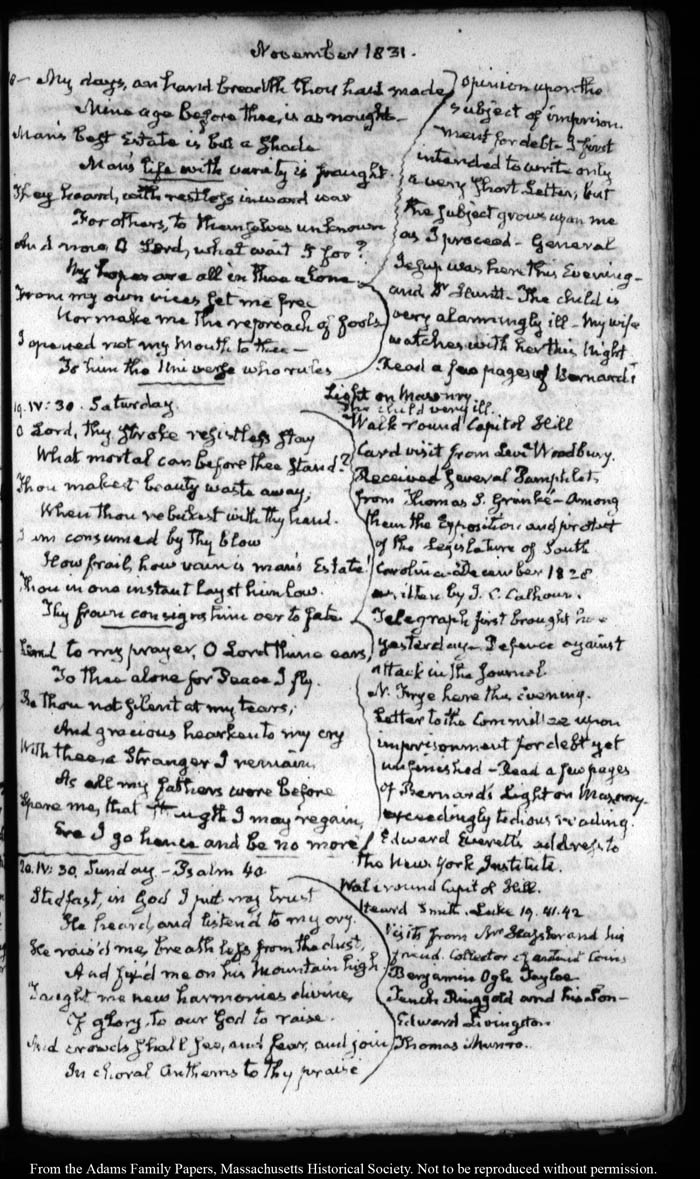 November 1831.
My days, an hand breadth thou hast made
Mine age before thee, is as nought—
Man's best Estate is but a Shade
Man's life with vanity is fraught.
They hoard, with restless inward war
For others, to themselves unknown
And now O Lord, what wait I for?
My hopes are all in thee alone—
From my own vices set me free
Nor make me the reproach of fools
I opened not my Mouth to thee—
To him the Universe who rules
opinion upon the
subject of imprison-
ment for debt— I first
intended to write only
a very short Letter, but
the subject grows upon me
as I proceed— General
Jesup was here this Evening—
and Dr Huntt— The child is
very alarmingly ill— My wife
watches with her this Night
Read a few pages of Bernard's
Light on Masonry.
19. IV:30. Saturday.
O Lord, thy stroke resistless stay
What mortal can before thee stand?
Thou makest beauty waste away,
When thou rebukest with thy hand.
I am consumed by thy blow
How frail, how vain is man's Estate!
Thou in one instant layst him low.
Thy frown consigns him oer to fate.
Lend to my prayer, O Lord thine ears,
To thee alone for Peace I fly.
Be thou not silent at my tears,
And gracious hearken to my cry
With thee a Stranger I remain,
As all my fathers were before
Spare me, that strength I may regain,
Ere I go hence and be no more!
The child very ill.
Walk round Capitol Hill
Card visit from Levi Woodbury.
Received several Pamphlets
from Thomas S. Grimké— Among
them the Exposition and protest
of the Legislature of South
Carolina December 1828
written by J. C. Calhoun.
Telegraph first brought here
yesterday— Defence against
attack in the Journal.
N. Frye here this evening.
Letter to the Committee upon
imprisonment for debt yet
unfinished— Read a few pages
of Bernard's Light on Masonry.
exceedingly tedious reading.
Edward Everett's address to
the New York Institute.
20. IV:30. Sunday— Psalm 40.
Stedfast, in God I put my trust
He heard, and listend to my cry.
He rais'd me, breathless from the dust,
And fix'd me on his Mountain high
Taught me new harmonies divine,
Of glory, to our God to raise.
And crowds shall see, and fear, and join
In choral Anthems to thy praise
Walk round Capitol Hill.
Heard Smith. Luke 19. 41.42
Visits from Mr and his
friend. Collector of antient Coins
Benjamin Ogle Tayloe
Tench Ringgold and his Son—
Edward Livingston
Thomas Munro.
From the Adams Family Papers, Massachusetts Historical Society. Not to be reproduced without permission.